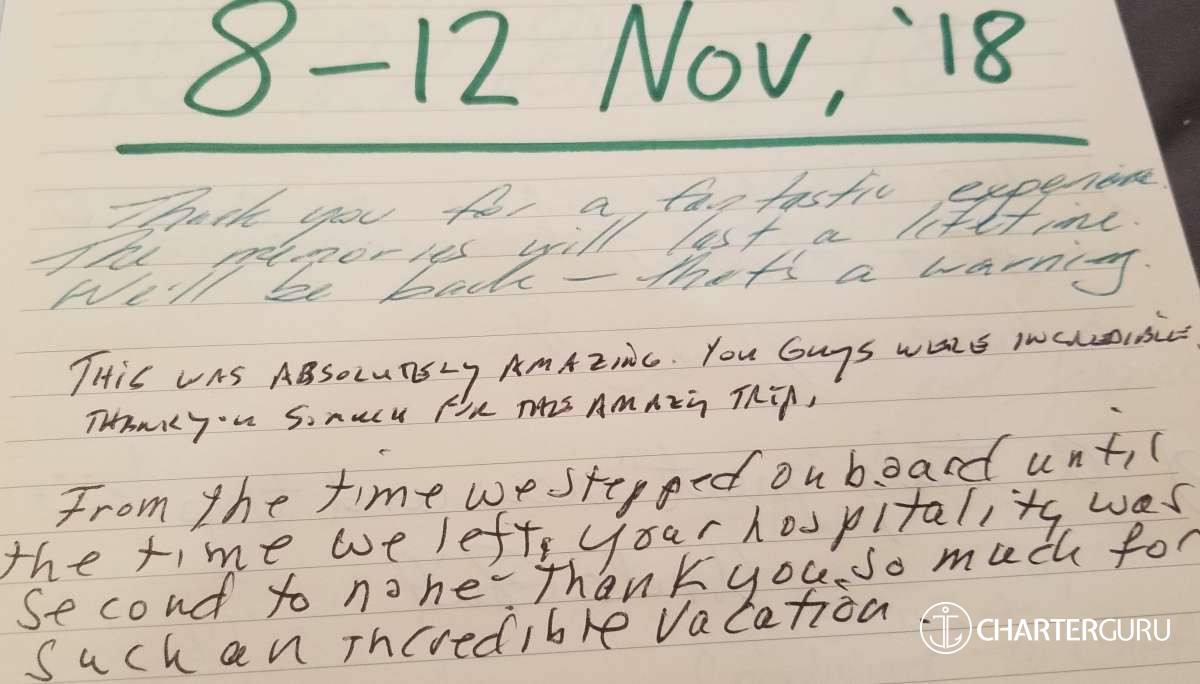 8-12 Nov, '18
Thank you for a fantastic experience.
The memories will last a lifetime.
We'll be back - that's a warning.
THIS WAS ABSOLUTELY AMAZING. YOU GUYS WERE INCREDIBLE.
THANK YOU SO MUCH FOR THIS AMAZIG TRIP,
From the time we stepped onboard until
the time we left, your hospitality was
second to none - Thank you so much for
such an incredible vacation.
CHARTERGURU